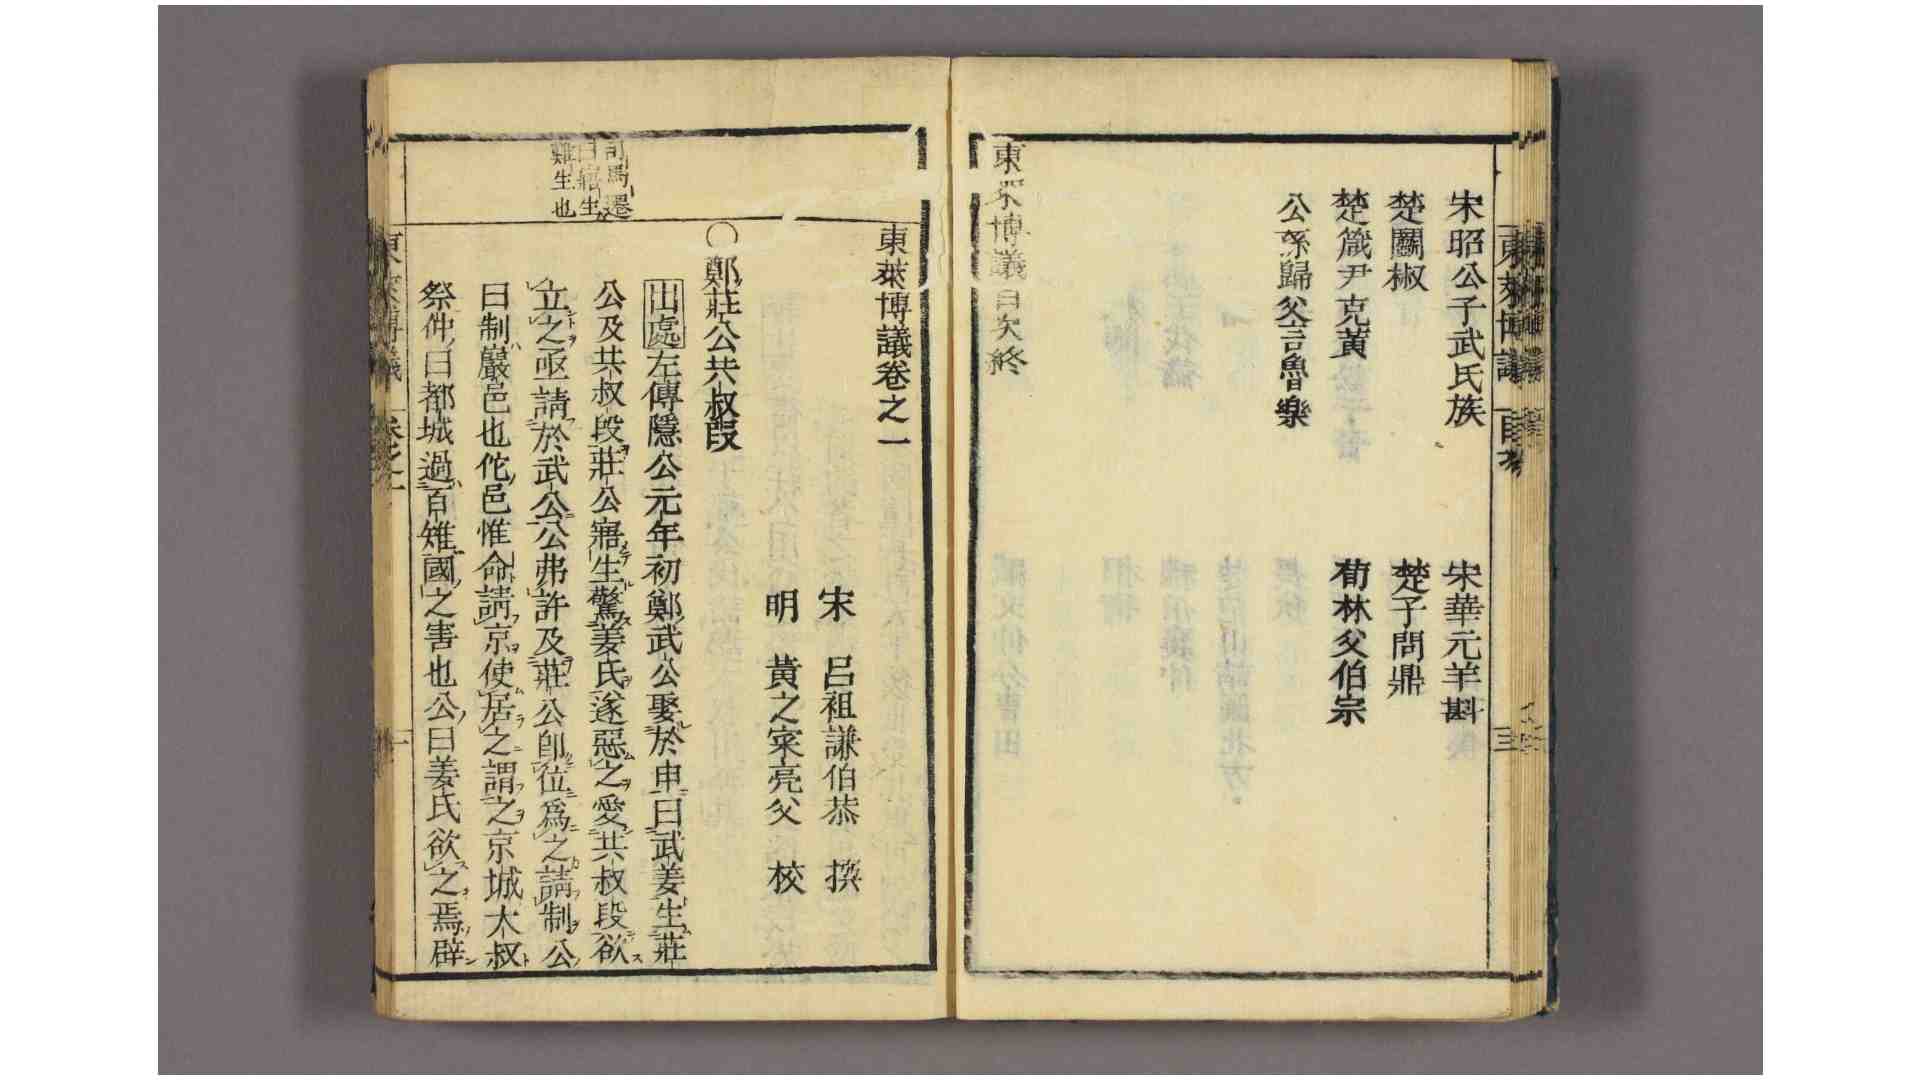 宋昭公子武氏族
宋華元羊斟
楚鬭椒
楚子問鼎
楚箴尹克黄
荀林父伯宗
公孫歸父言魯樂
東萊博議目次終
東萊博議卷之一
宋 呂祖謙伯恭 撰
明 黃之寀亮父 校
〇鄭莊公共叔段
出處左傳隱公元年初鄭武公娶於申曰武姜生莊
公及共叔段莊公寤生驚姜氏遂惡之愛共叔段欲
立之亟請於武公公弗許及莊公卽位爲之請制公
曰制巖邑也佗邑惟命請京使居之謂之京城大叔
祭仲曰都城過百雉國之害也公曰姜氏欲之焉辟
司馬遷
曰寤生
難生也
東萊博議
卷之一
一
東萊博議
目次
三